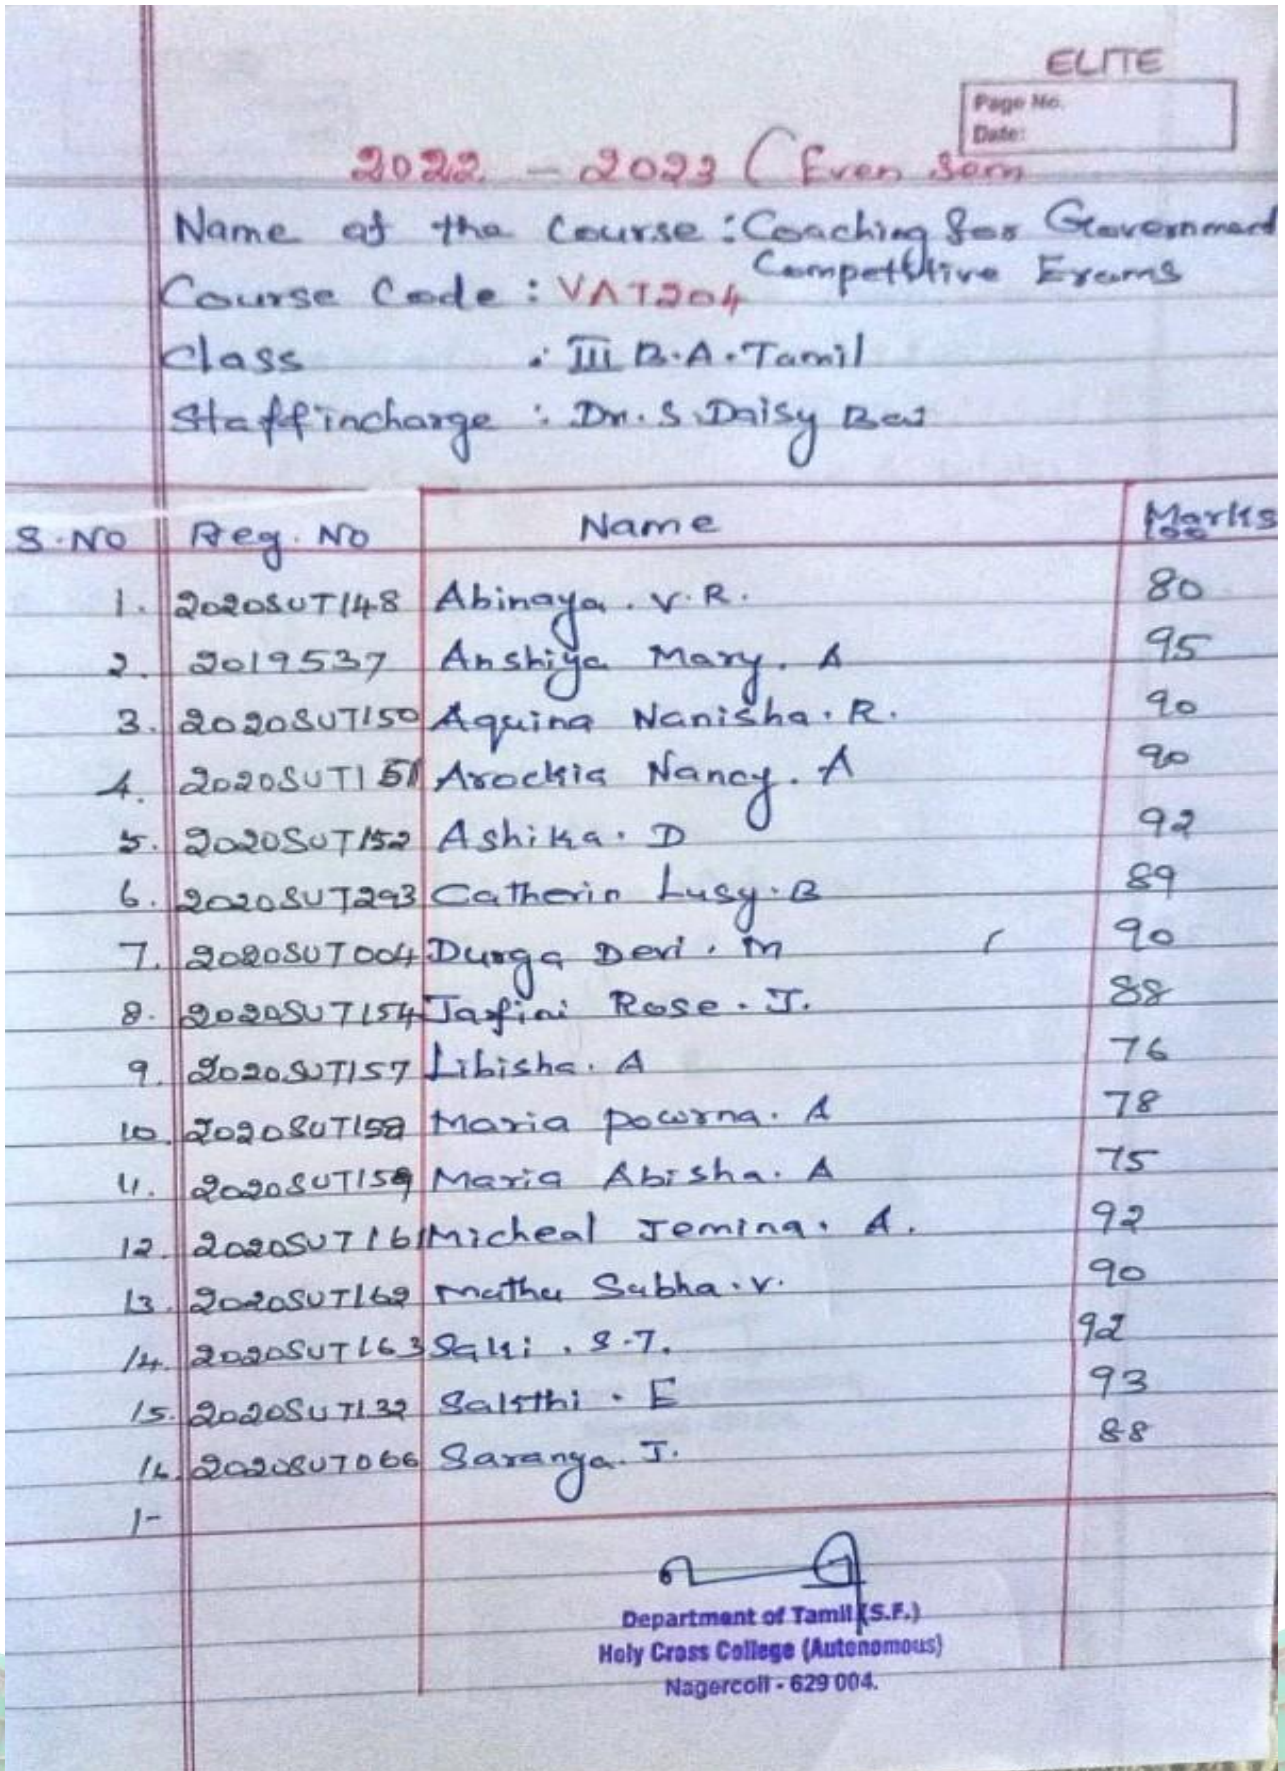 ELITE
Page No.
Date:
2022 - 2023 (Even Sem
Name of the Course : Coaching for Government
Competitive Exams
Course Code : VAT204
Class : III B.A. Tamil
Staff incharge : Dr. S. Daisy Bai
S.No Reg. No Name Marks
100
1. 2020SUT148 Abinaya. V.R. 80
2. 2019537 Anshiya Mary. A 95
3. 2020SUT150 Aquina Nanisha. R. 90
4. 2020SUT151 Arockia Nancy. A 90
5. 2020SUT152 Ashika. D 92
6. 2020SUT293 Catherin Lusy. B 89
7. 2020SUT004 Durga Devi. M 90
8. 2020SUT154 Jasfini Rose. J. 88
9. 2020SUT157 Libisha. A 76
10. 2020SUT158 Maria Powrna. A 78
11. 2020SUT159 Maria Abisha. A 75
12. 2020SUT161 Micheal Jemina. A. 92
13. 2020SUT162 Mathu Subha. V. 90
14. 2020SUT163 Saki. S.T. 92
15. 2020SUT132 Sakthi. E 93
16. 2020SUT066 Saranga. J. 88
1-
Department of Tamil (S.F.)
Holy Cross College (Autonomous)
Nagercoil - 629 004.